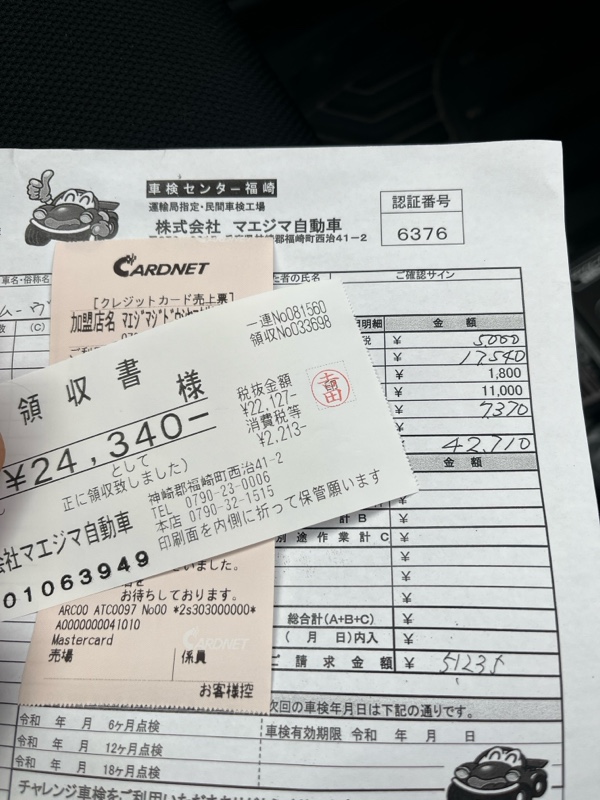 車検センター福崎
運輸局指定・民間車検工場
株式会社 マエジマ自動車
福崎町西治41-2
認証番号
6376
車名・俗称名
者の氏名
ご確認サイン
(C)
明細
金 額
税
¥ 5000
¥ 17540
¥ 1,800
¥ 11,000
¥ 7,370
42,710
金 額
¥
計 B ¥
別途作業計 C ¥
¥
¥
総合計(A+B+C) ¥
( 月 日)内入 ¥
ご 請 求 金 額 ¥
次回の車検年月日は下記の通りです。
車検有効期限 令和 年 月 日
令和 年 月 6ヶ月点検
令和 年 月 12ヶ月点検
令和 年 月 18ヶ月点検
チャレンジ車検をご利用いただ
CARDNET
[クレジットカード売上票]
加盟店名
いました。
お待ちしております。
ARC00 ATC0097 No00 *2s303000000*
A0000000041010
Mastercard
CARDNET
売場
係員
お客様控
一連No081560
領収No033698
領 収 書 様
¥24,340-
税抜金額
¥22,127-
消費税等
¥2,213-
として
正に領収致しました)
神崎郡福崎町西治41-2
TEL 0790-23-0006
本店 0790-32-1515
会社マエジマ自動車
印刷面を内側に折って保管願います
01063949